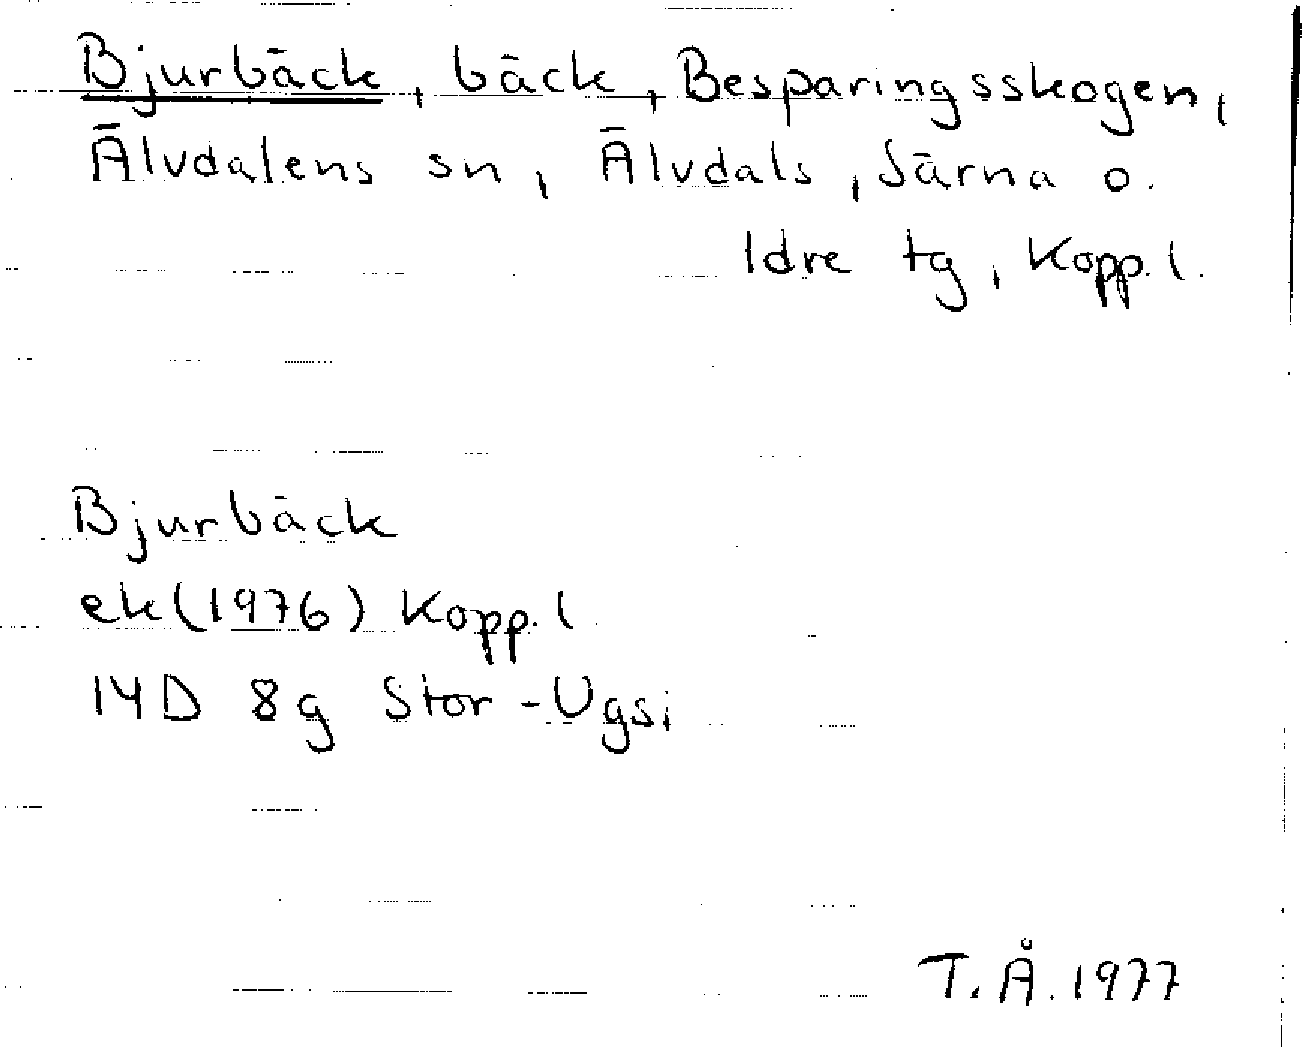 Bjurbäck, bäck, Besparingsskogen,
Älvdalens sn, Älvdals, Särna o.
Idre tg, Kopp. l.
Bjurbäck
ek (1976) Kopp. l
14D 8g Stor-Ugsi
T. Å. 1977